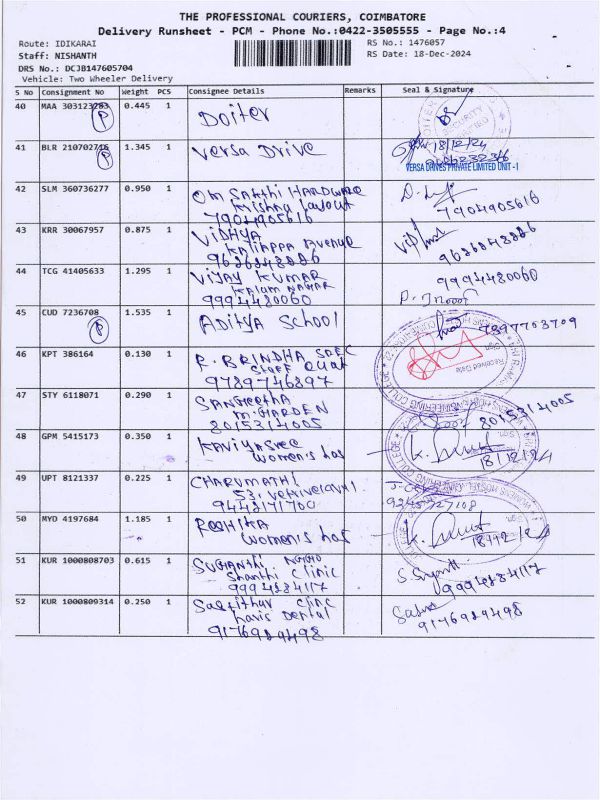 THE PROFESSIONAL COURIERS, COIMBATORE
Delivery Runsheet - PCM - Phone No.:0422-3505555 - Page No.:4
Route: IDIKARAI
RS No.: 1476057
Staff: NISHANTH
RS Date: 18-Dec-2024
DRS No.: DCJB147605704
Vehicle: Two Wheeler Delivery
S No Consignment No Weight PCS Consignee Details Remarks Seal & Signature
40 MAA 303123283 0.445 1 Doiter
P
SECURITY
41 BLR 210702716 1.345 1 Versa Drive 18/12/24
P
VERSA DRIVES PRIVATE LIMITED UNIT -1
42 SLM 360736277 0.950 1 Om Sakthi HARDWARE
Krishna Layout
7904905616 7904905616
43 KRR 30067957 0.875 1 ViDHYA
Kaliappa Avenue
9626848886 9626848886
44 TCG 41405633 1.295 1 VIJAY KUMAR
Kalam NAGAR 9994480060
9994480060
45 CUD 7236708 1.535 1 ADitya School 7397763709
P
46 KPT 386164 0.130 1 R. BRINDHA SREC
Staff Quat
9789746897
Received Date
Sign.
ENGINEERING COLLEGE
47 STY 6118071 0.290 1 SANGEETHA
M. GARDEN
8015314005 8015314005
48 GPM 5415173 0.350 1 Kaviyasree
Women's has K. 18/12/24
49 UPT 8121337 0.225 1 CHARUMATHI
53,
9442171700
50 MYD 4197684 1.185 1 Roshika
Women's has K. 18/12/24
51 KUR 1000808703 0.615 1 SUGANTHI
Shanthi Clinic S.
9994284117 9994284117
52 KUR 1000809314 0.250 1 Clinic
Haris Dental
9176929498 9176929498